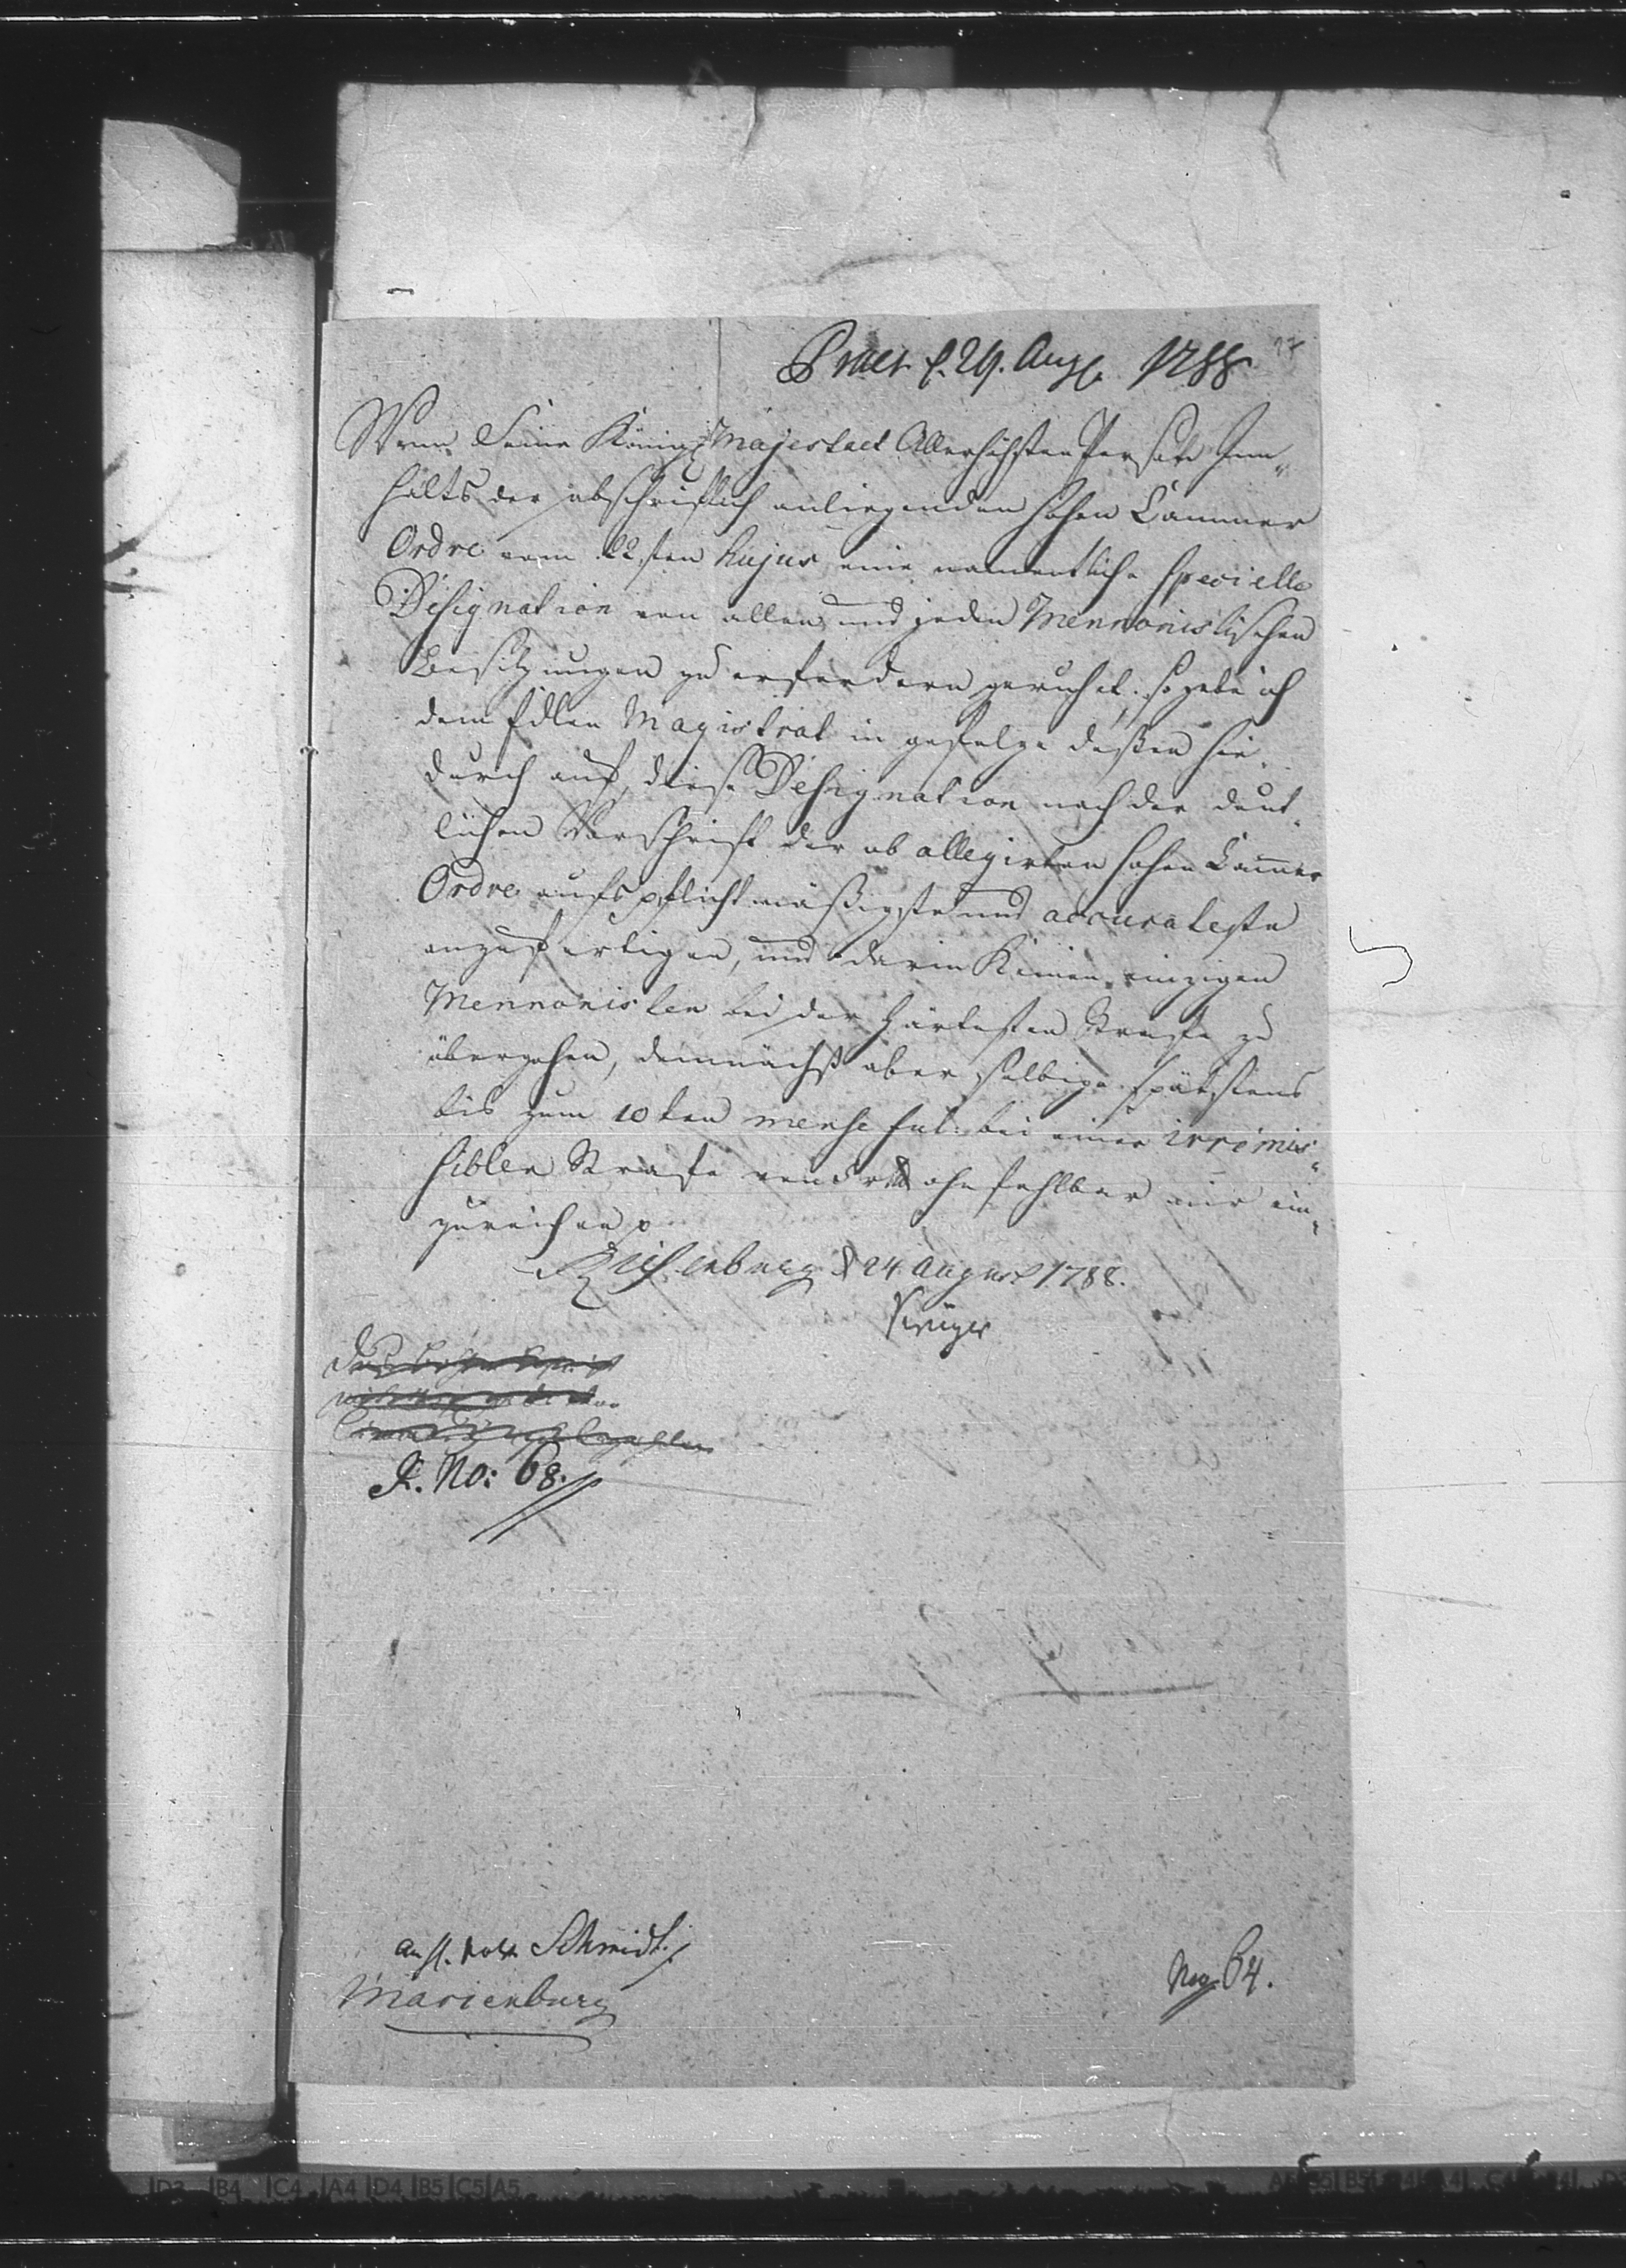 Praes. d. 29. Aug. 1788.
Wenn Seine Königl Majestaet Allerhöchsten Persohn Inn„
halts der abschriftlich anliegenden hohen Cammer
Ordre vom 22sten hujus eine namentliche specielle
Designation von allen und jeden Mennonistischen
Besitzungen zu erfordern geruhet, so gebe ich
dem Edlen Magistrat in gefolge deßen hie.
durch auf, diese Designation nach der deut„
lichen Vorschrift der ab allegirten hohen Cammer
Ordre aufs pflichtmäßigste und accurateste
anzufertigen, und darin Keinen einzigen
Mennonisten bei der härtesten Strafe zu
übergehen, demnächst aber selbige spätstens
bis zum 10ten mense fut: bei einer irremis„
siblen Strafe von ohnfehlbar mir ein„
zureichen p
Riesenburg d 24 August 1788.
Krüger
R. No: 68.
Schmidt.
Marienburg
No. 64.